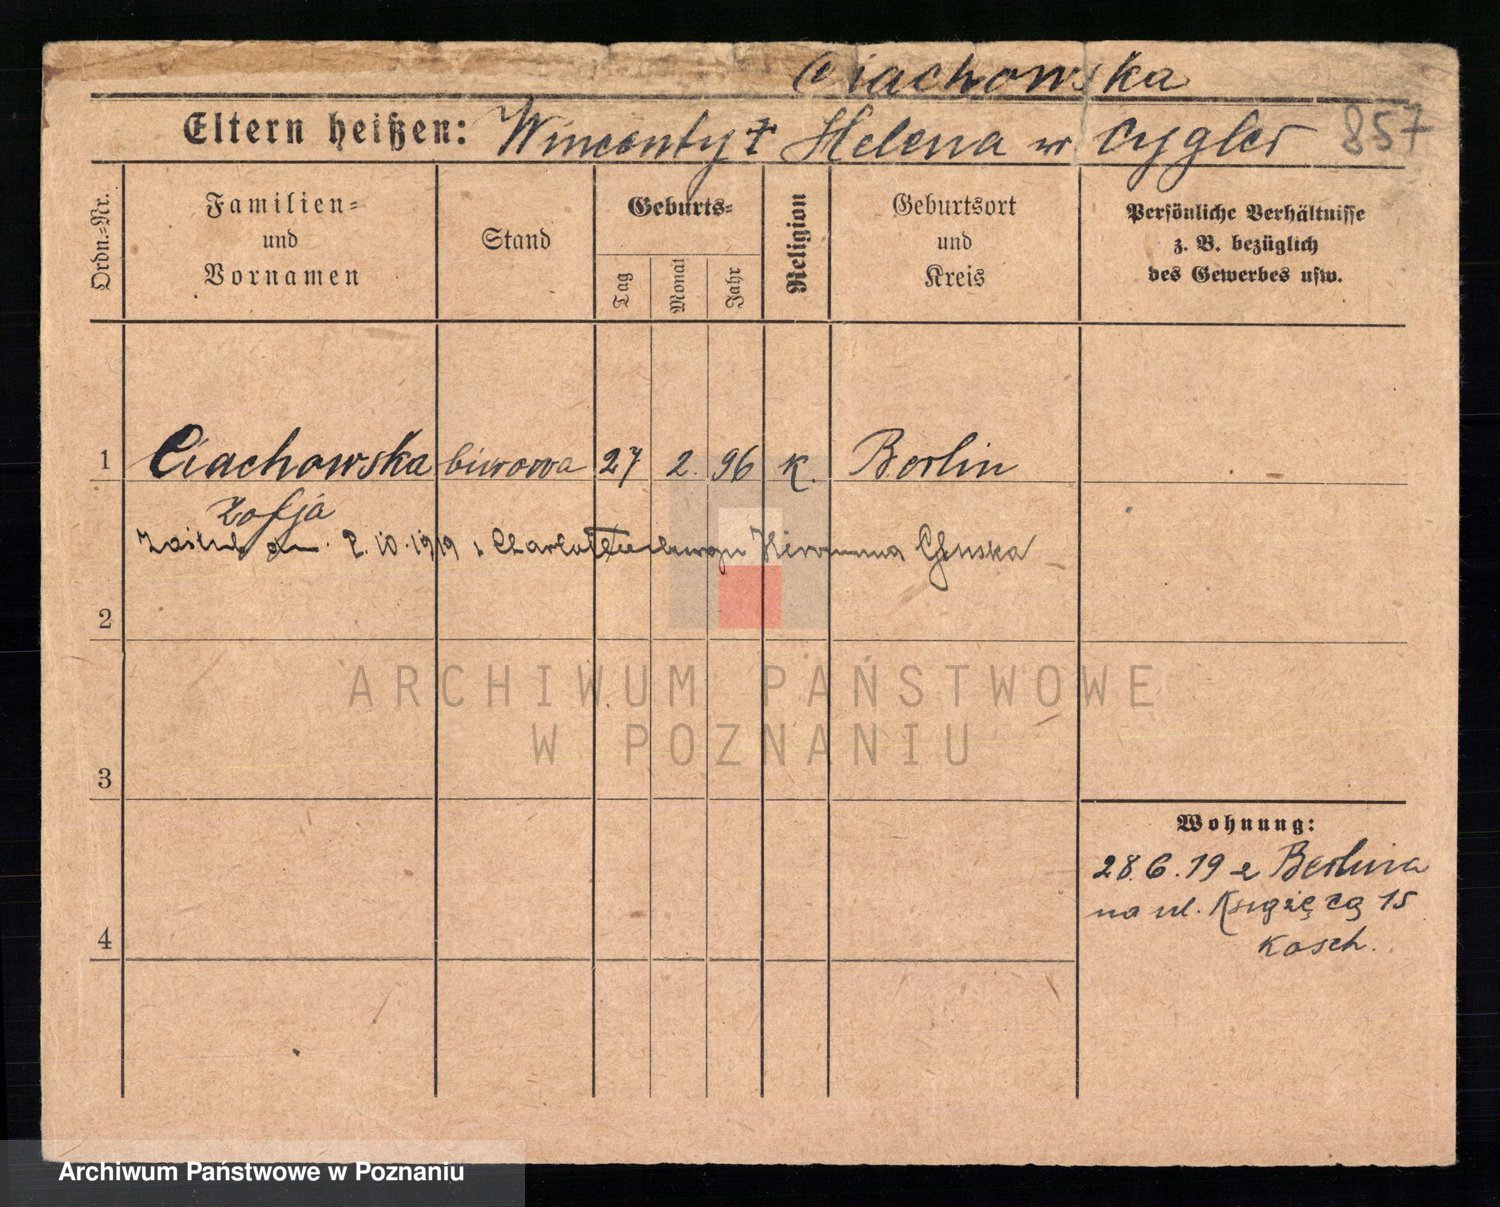 Ciachowska
Eltern heißen: Wincenty † Helena w Cygler 857
Ordn.-Nr.
Familien-
und
Vornamen
Stand
Geburts-
Tag
Monat
Jahr
Religion
Geburtsort
und
Kreis
Persönliche Verhältnisse
z. B. bezüglich
des Gewerbes usw.
1 Ciachowska biurowa 27 2. 96 k. Berlin
Zofja
2.10.1919 Charlottenburgu
2
ARCHIWUM PAŃSTWOWE
W POZNANIU
3
Wohnung:
28.6.19 z Berlina
na ul. Książęcą 15
Kosch.
4
Archiwum Państwowe w Poznaniu